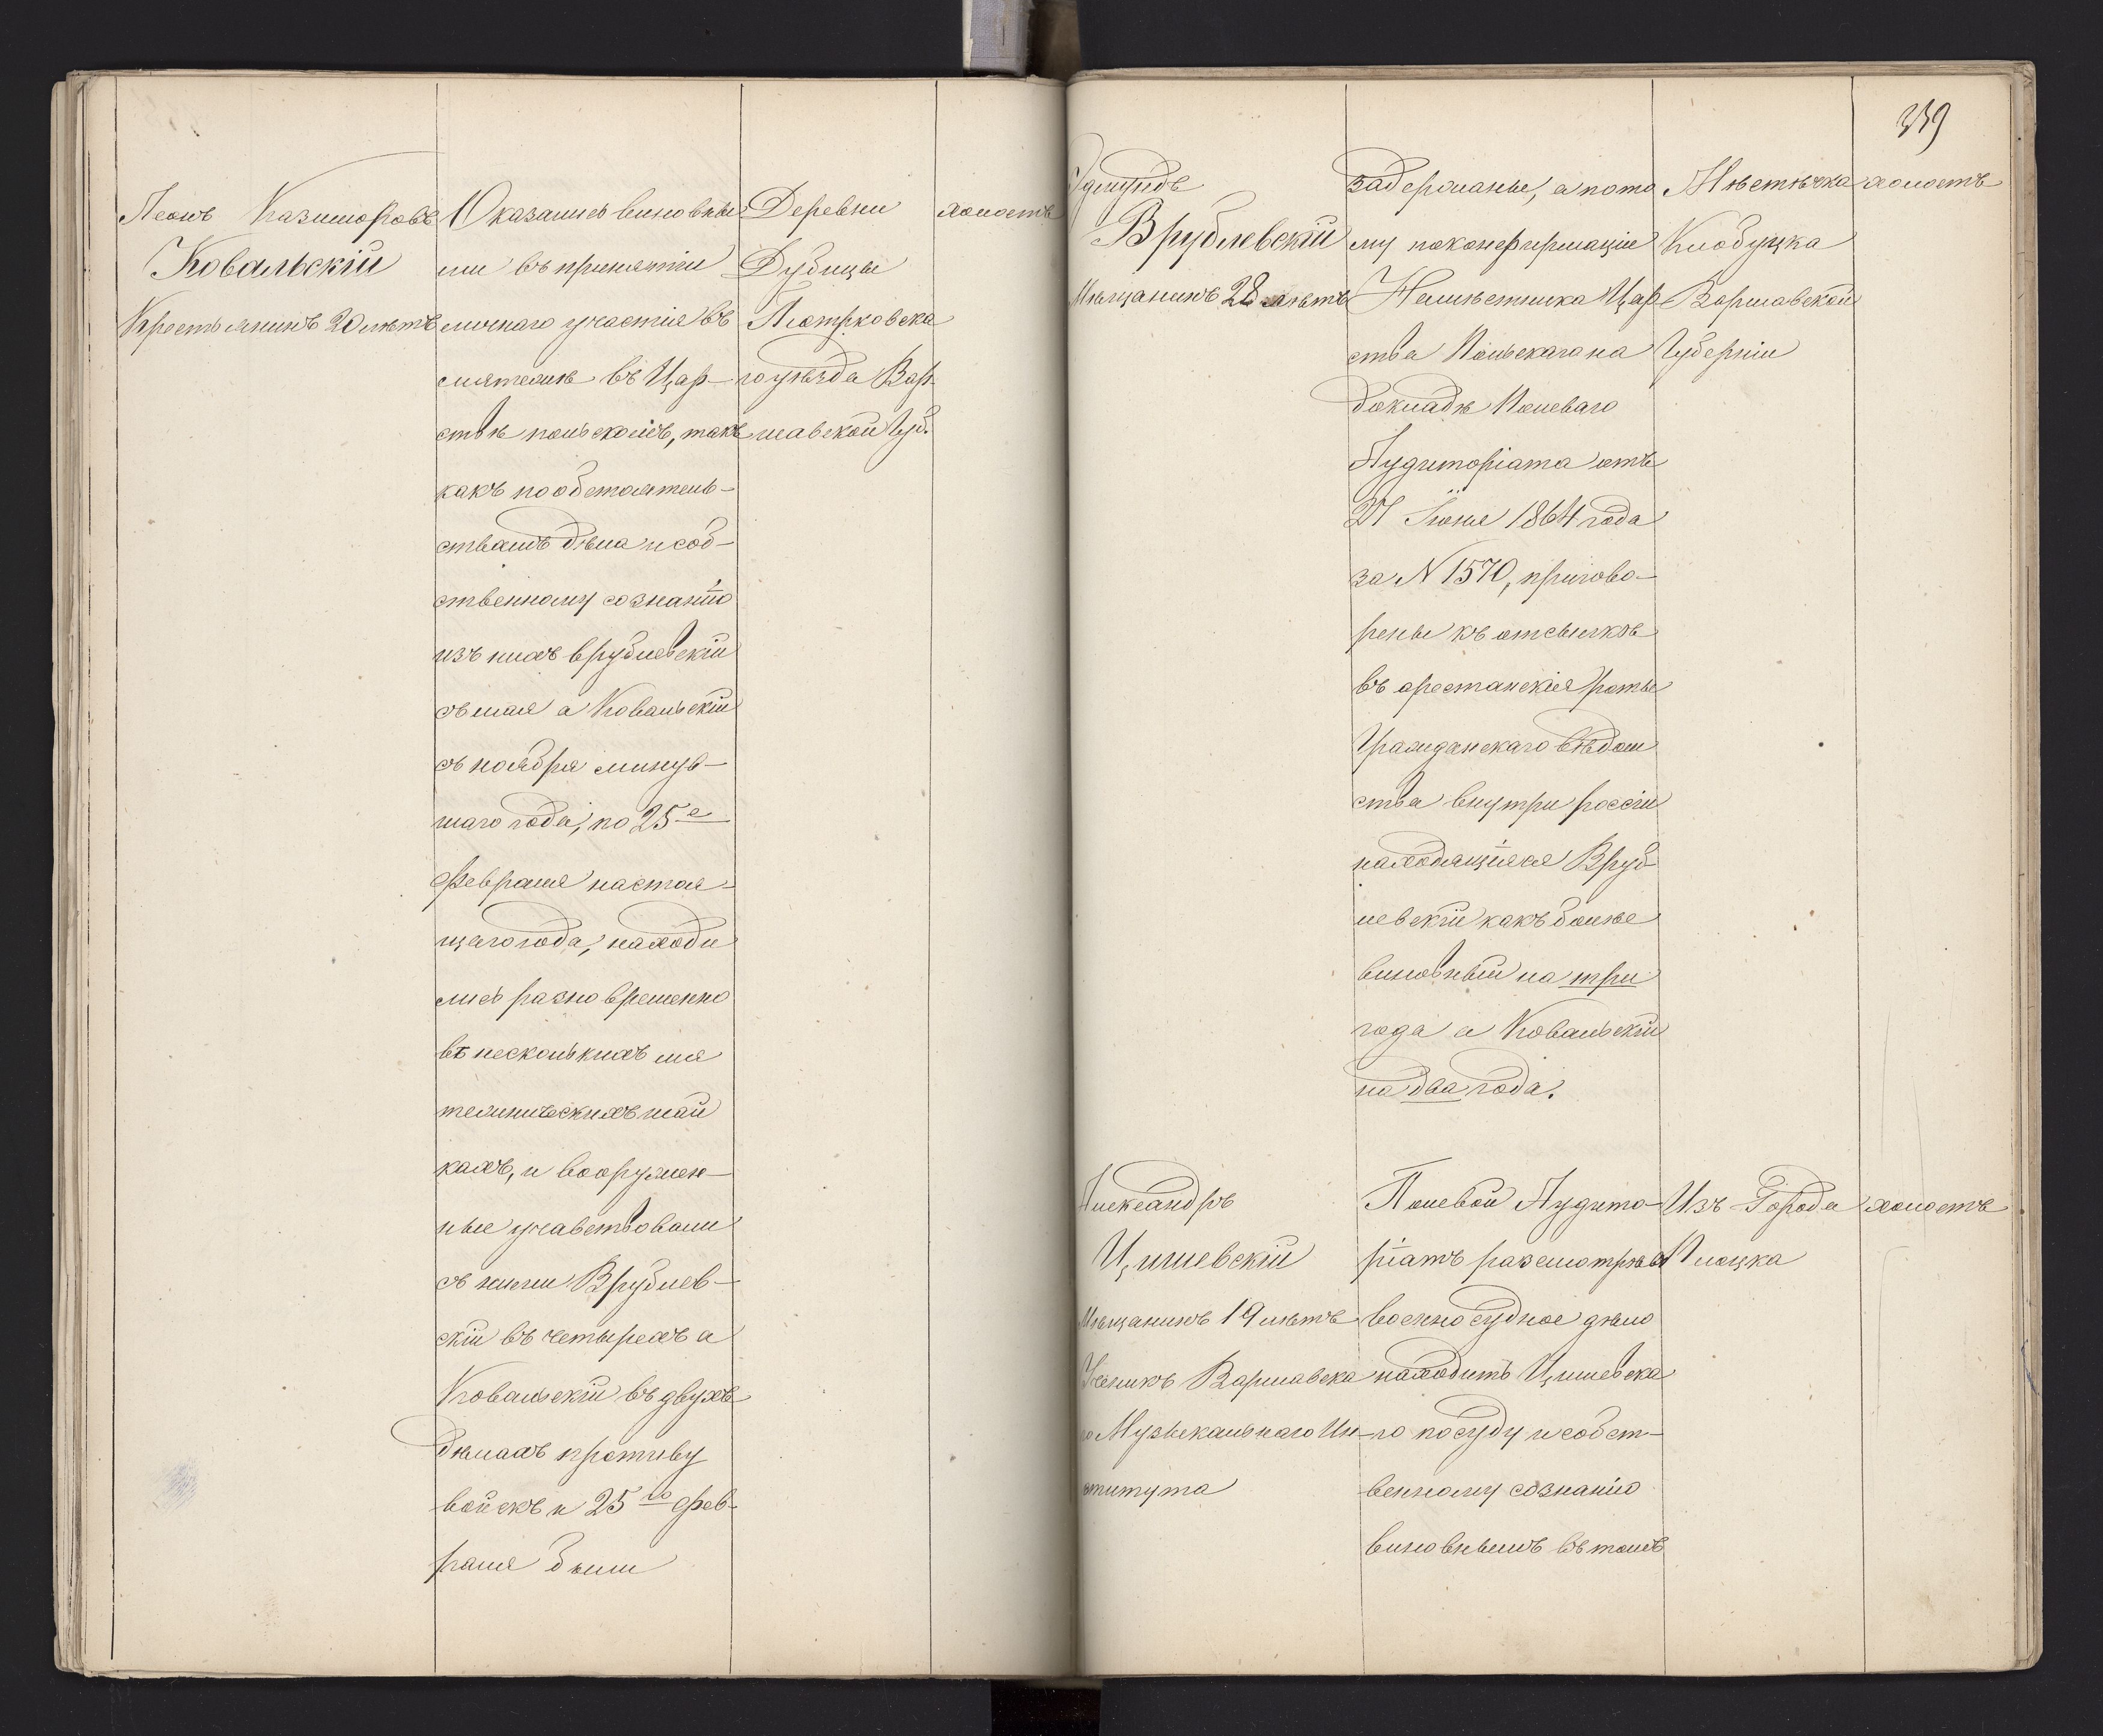 Леонъ Казимфровъ
Ковальскій
Крестьянинъ 20 лѣтъ
Оказались виновны
ми въ принятіи
личнаго участія въ
мятежѣ въ Цар-
ствѣ польскомъ, такъ
какъ по обстоятель-
ствамъ дѣла и соб-
ственному сознанію
изъ нихъ врублевскій
съ мая а Ковальскій
съ ноября минув-
шаго года, по 25е
Февраля настоя-
щаго года, находи
лись разновременно
въ несколькихъ мя
тежническихъ шай
кахъ, и вооружен-
ные участвовали
съ ними Врублев-
скій въ четырехъ а
Ковальскій въ двухъ
дѣлахъ противу
войскъ и 25го фев-
раля были
Деревни
Дубицы
Піотрковска
го уѣзда Вар
шавской Губ.
холостъ
339
Эдмундъ
Врублевскій
Мѣщанинъ 28 лѣтъ
задержаны, а пото
му по конфирмаціи
Намѣстника Цар
ства Польскаго на
докладѣ Полеваго
Аудиторіата отъ
27 Іюня 1864 года
за N 1570, пригово-
рены къ отсылкѣ
въ арестанскія роты
Гражданскаго вѣдом
ства внутри россіи
находящіяся Вруб
левскій какъ болѣе
виновный на три
года а Ковальскій
на два года.
Мѣстѣчка
Клобуцка
Варшавской
Губерніи
холостъ
Александръ
Цишевскій
Мѣщанинъ 19 лѣтъ
Ученикъ Варшавска
го Музыкальнаго Ин-
ститута
Полевой Аудито-
ріатъ разсмотрѣвъ
военно судное дѣло
находитъ Цишевска
го по суду и собст-
венному сознанію
виновнымъ въ томъ
Изъ Города
Плоцка
холостъ